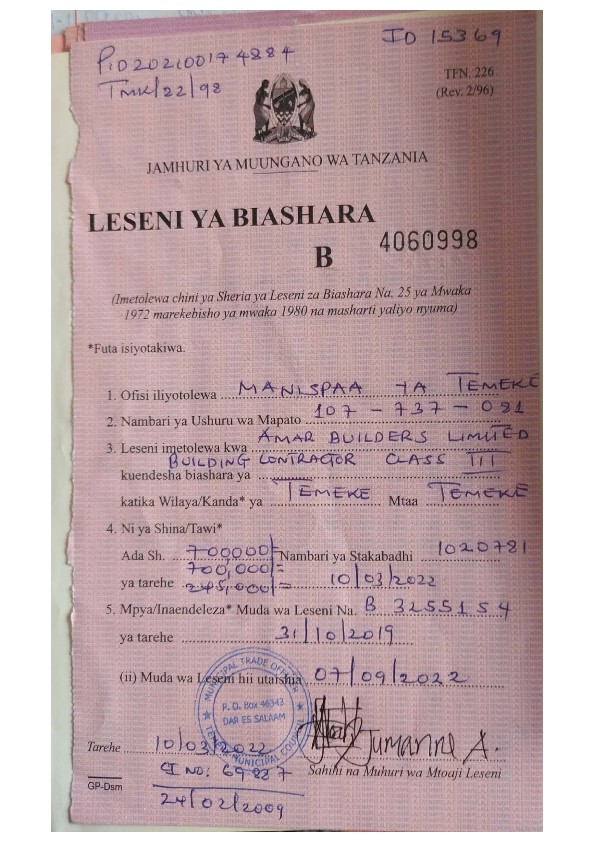 PID20210017 4884
ID 15369
TMK/22/98
TFN. 226
(Rev. 2/96)
JAMHURI YA MUUNGANO WA TANZANIA
LESENI YA BIASHARA
B 4060998
(Imetolewa chini ya Sheria ya Leseni za Biashara Na. 25 ya Mwaka
1972 marekebisho ya mwaka 1980 na masharti yaliyo nyuma)
*Futa isiyotakiwa.
1. Ofisi iliyotolewa MANISPAA YA TEMEKE
2. Nambari ya Ushuru wa Mapato 107 - 737 - 081
3. Leseni imetolewa kwa AMAR BUILDERS LIMITED
BUILDING CONTRACTOR CLASS III
kuendesha biashara ya
katika Wilaya/Kanda* ya TEMEKE Mtaa TEMEKE
4. Ni ya Shina/Tawi*
Ada Sh. 700000/= Nambari ya Stakabadhi 1020781
700,000/=
ya tarehe 245,000/= 10/03/2022
5. Mpya/Inaendeleza* Muda wa Leseni Na. B 3255154
ya tarehe 31/10/2019
(ii) Muda wa Leseni hii utaishia 07/09/2022
MUNICIPAL TRADE OFFICER
P. O. Box 46343
DAR ES SALAAM
TEMEKE MUNICIPAL COUNCIL
Tarehe 10/03/2022 Jumanne A.
CI NO: 69827 Sahihi na Muhuri wa Mtoaji Leseni
GP-Dsm
24/02/2009